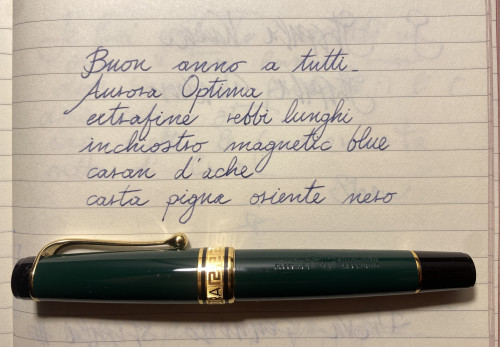 Buon anno a tutti_
Aurora Optima
extrafine rebbi lunghi
inchiostro magnetic blue
caran d'ache
carta pigna oriente nero